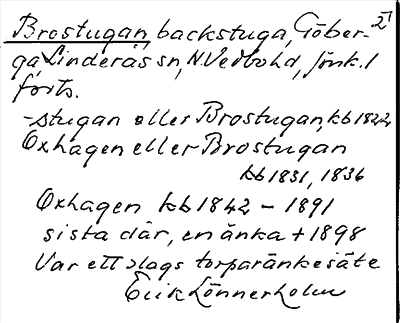 Brostugan, backstuga, Göber- 21
ga, Linderås sn, N. Vedbohd, Jönk. l
forts.
-stugan eller Brostugan, kb 1822
Oxhagen eller Brostugan
kb 1831, 1836
Oxhagen kb 1842 - 1891
sista där, en änka + 1898
Var ett slags torparänkesäte
Erik Lönnerholm